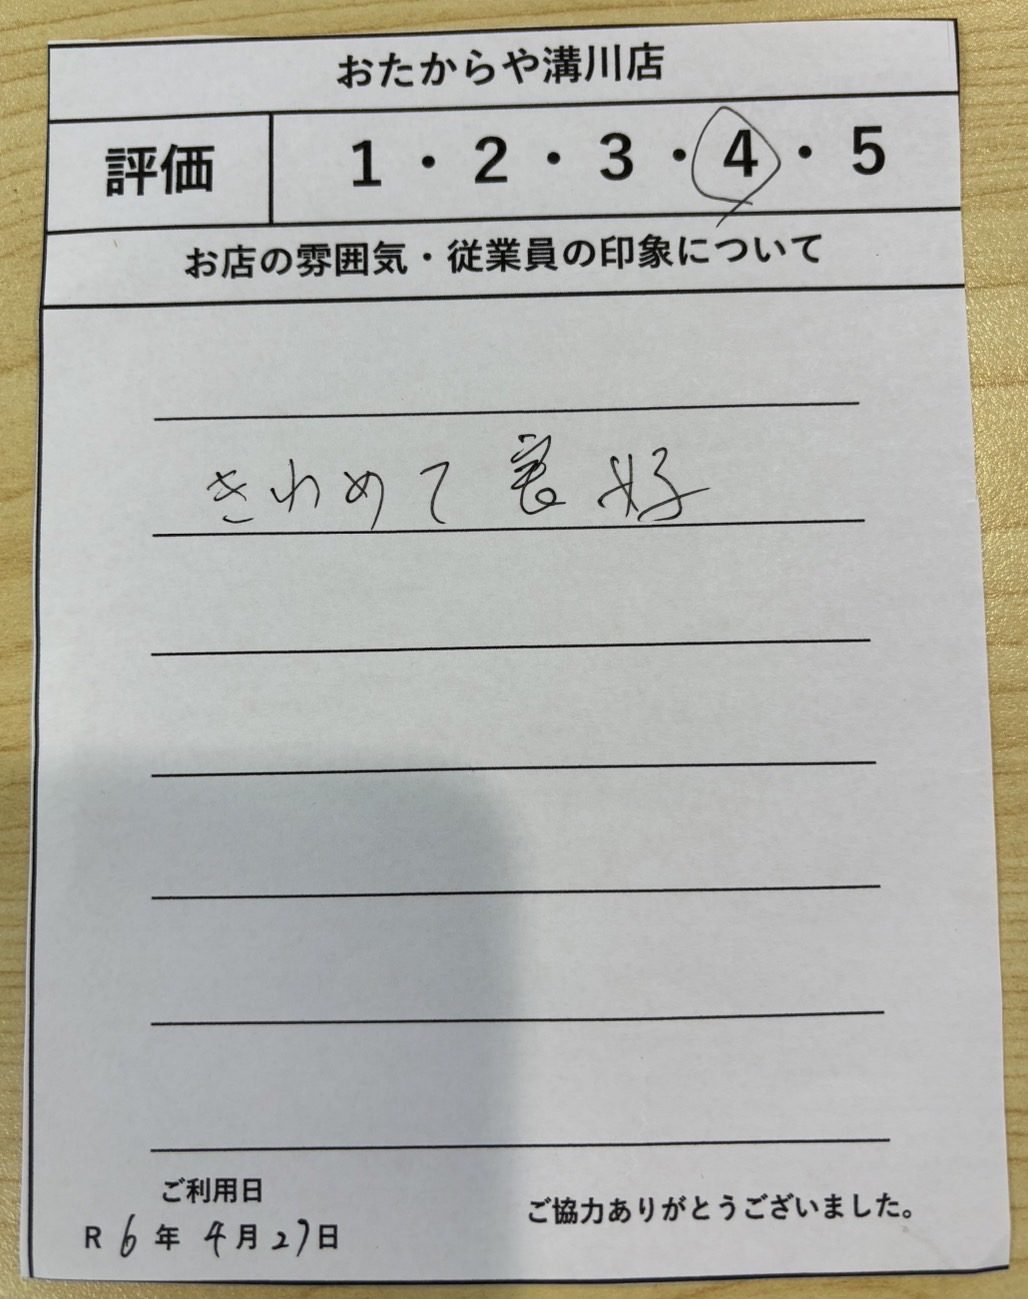 おたからや溝川店
評価 1・2・3・4・5
お店の雰囲気・従業員の印象について
きわめて良好
ご利用日
R 6年 4月27日
ご協力ありがとうございました。